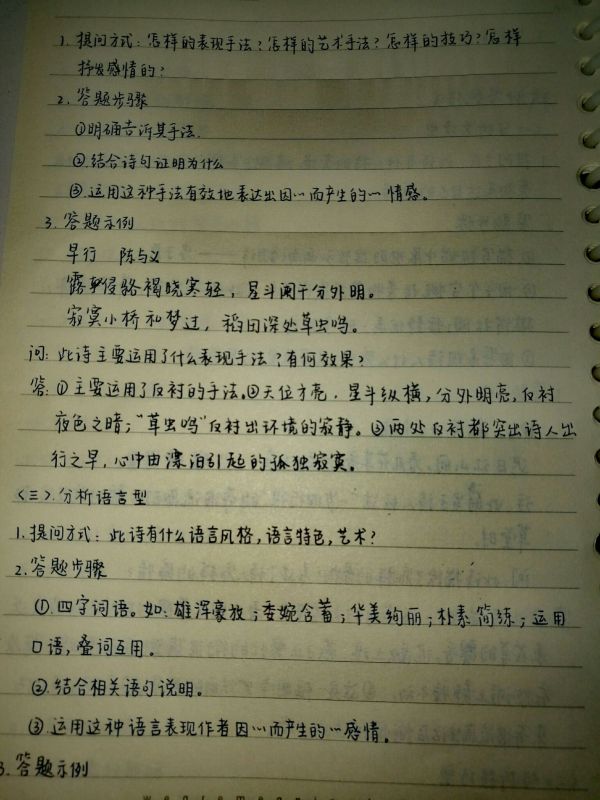 1. 提问方式：怎样的表现手法？怎样的艺术手法？怎样的技巧？怎样
抒发感情的？
2. 答题步骤
①明确告诉其手法.
②.结合诗句证明为什么
③.运用这种手法有效地表达出因…而产生的…情感。
3. 答题示例
早行 陈与义
露侵骆褐晓寒轻，星斗阑干分外明。
寂寞小桥和梦过，稻田深处草虫鸣。
问：此诗主要运用了什么表现手法？有何效果？
答：①主要运用了反衬的手法。②天位方亮，星斗纵横，分外明亮，反衬
夜色之暗；"草虫鸣"反衬出环境的寂静。③两处反衬都突出诗人出
行之早，心中由漂泊引起的孤独寂寞。
<三>.分析语言型
1. 提问方式：此诗有什么语言风格，语言特色，艺术？
2. 答题步骤
①.四字词语。如：雄浑豪放；委婉含蓄；华美绚丽；朴素简练；运用
口语，叠词互用。
②.结合相关语句说明。
③.运用这种语言表现作者因…而产生的…感情。
3. 答题示例